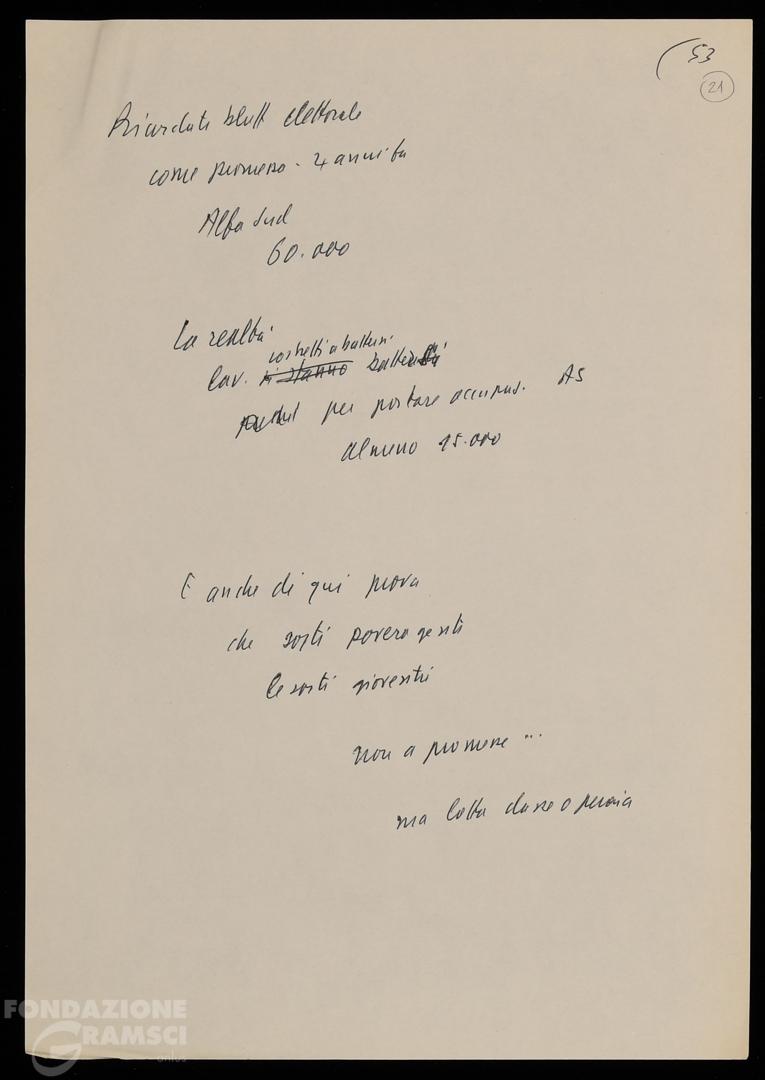 53
21
Ricordate bluff elettorale
come promesso - 4 anni fa
Alfa Sud
60.000
La realtà
costretti a battersi
Lav. si stanno
per portare occupaz. AS
almeno 15.000
E anche di qui prova
che sorti povera gente
le sorti gioventù
non a promesse ...
ma lotta classe operaia
FONDAZIONE
GRAMSCI
onlus